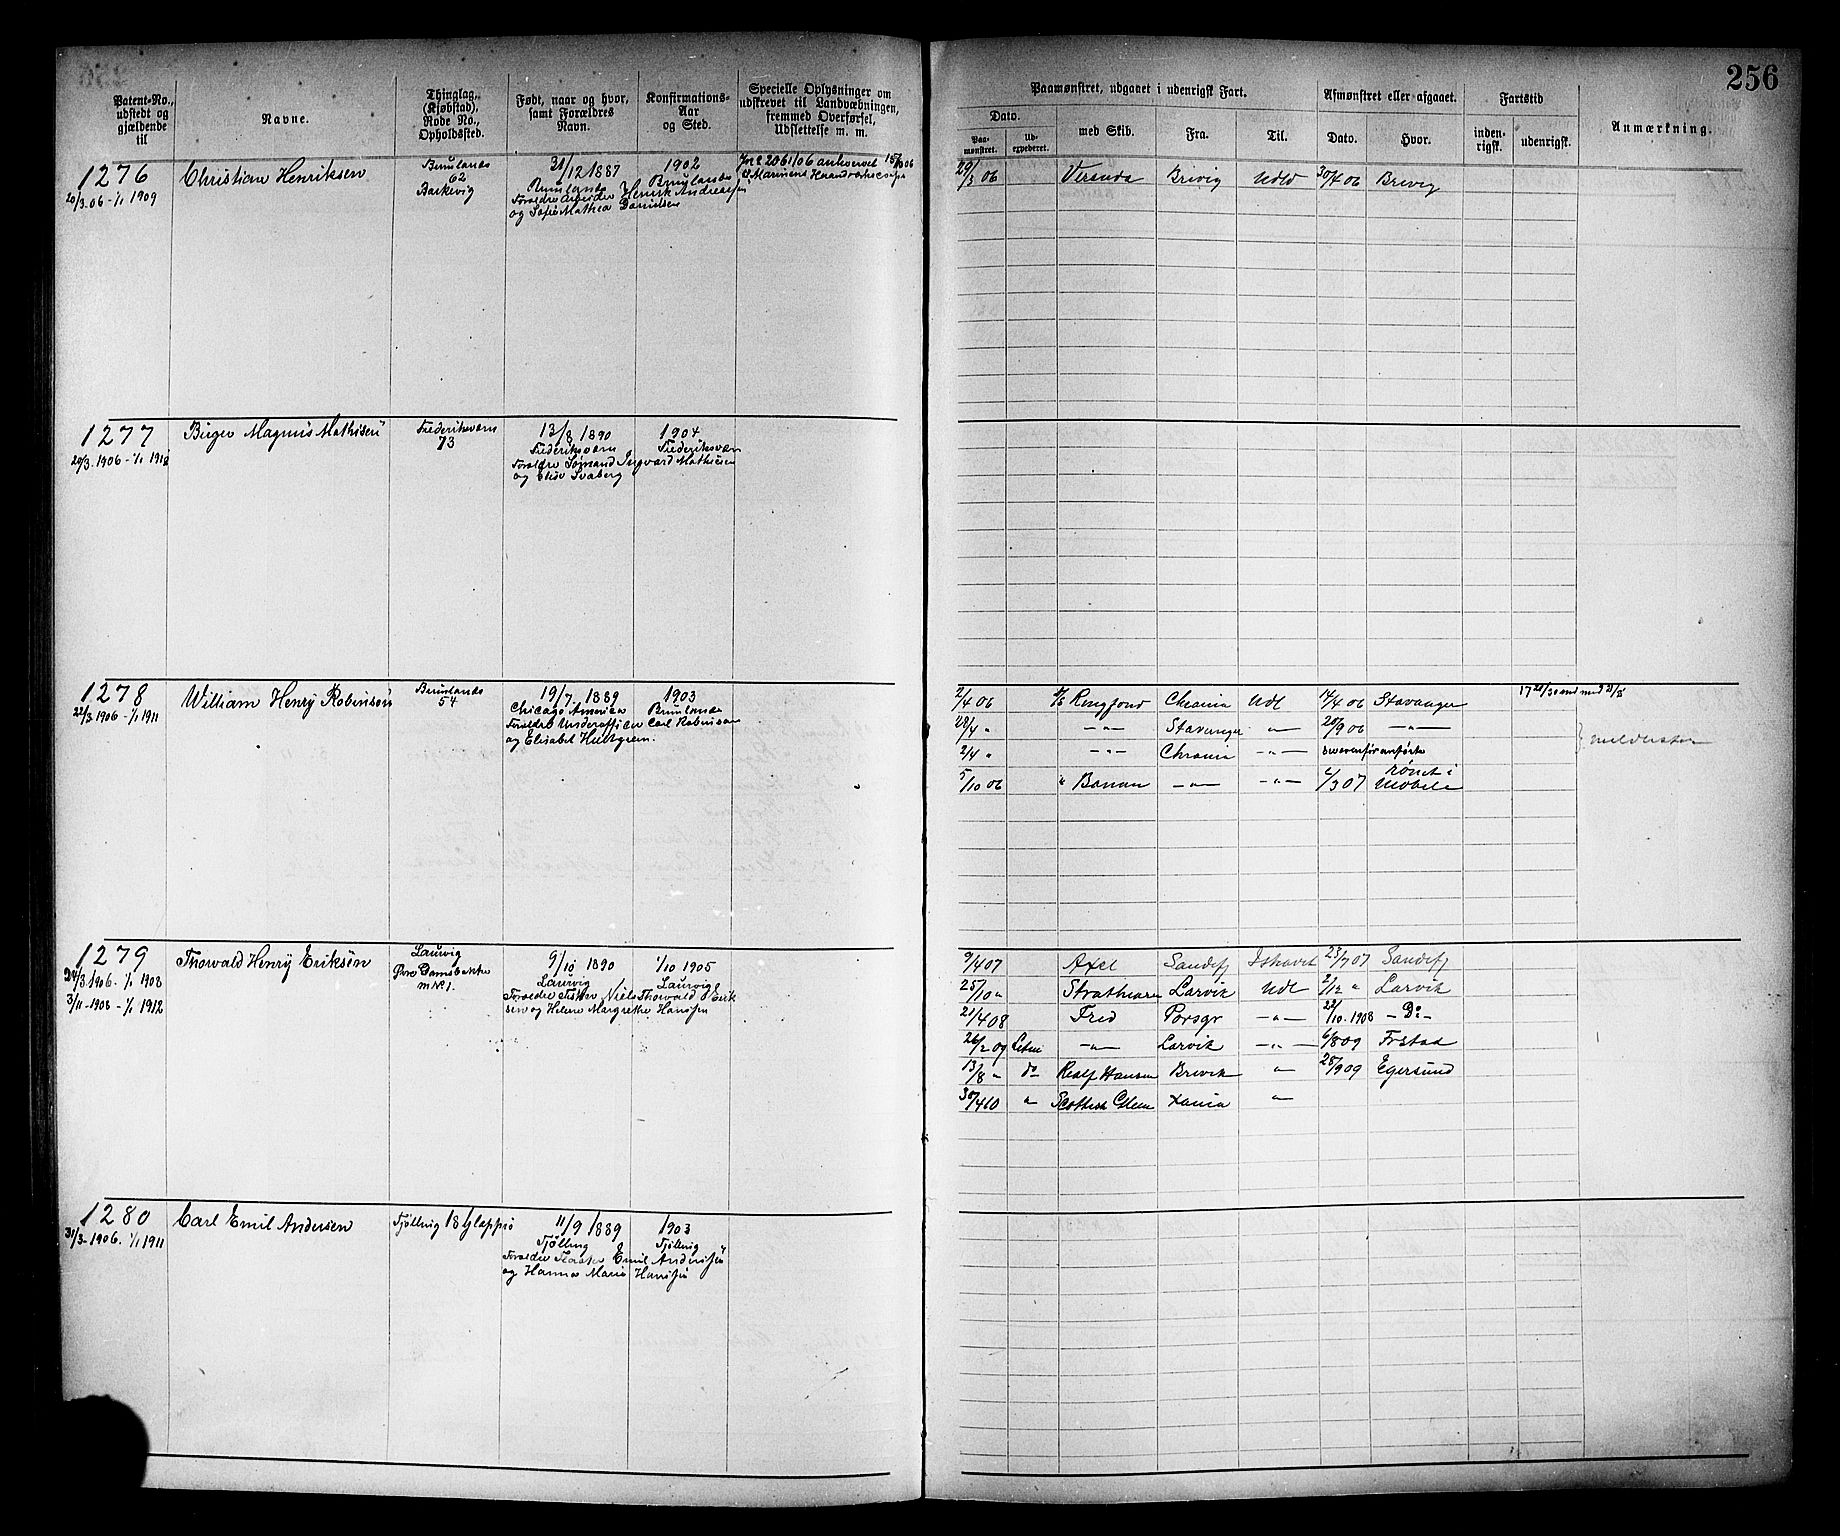 256
Patent-No., udstedt og gjældende til
Navne.
Thinglag, (Kjøbstad), Rode No., Opholdssted.
Født, naar og hvor, samt Forældres Navn.
Konfirmations-Aar og Sted.
Specielle Oplysninger om udskrevet til Landværnet, fremmed Overførsel, Udslettelse m. m.
Paamønstret, udgaaet i udenrigsk Fart.
Dato.
Paa-mønstret.
Ud-expederet.
med Skib.
Fra.
Til.
Afmønstret eller afgaaet.
Dato.
Hvor.
Fartstid
inden-rigsk.
udenrigsk.
Anmærkning.
1276
20/3.06 - 1/1 1909
Christian Henriksen
Brunlanes
62
Barkevig
31/12 1887
Brunlanes
Forældre Arbeider Henrik Andreassen
og Sofie Mathea Danielsen
1902
Brunlanes
29/3 06 Veranda Brevig Udld 30/4 06 Brevig
1277
20/3.1906 - 1/1 1912
Birger Magnus Mathisen
Frederiksværn
73
13/8 1890
Frederiksværn
Forældre Sømand Ingvard Mathisen
og Elise Svaberg
1904
Frederiksværn
1278
22/3 1906 - 1/1 1911
William Henry Robinson
Brunlanes
54
19/7 1889
Chicago America
Forældre Underofficer Carl Robinson
og Elisabet Hultgreen.
1903
Brunlanes
2/4 06 Ringfond Chrania Udl 14/4 06 Stavanger
28/4 " -"- Stavanger -"- 20/9 06 -"-
2/4 " -"- Chrania -"- ovenforanførte
5/10 06 " Banan -"- -"- 2/3 07 rømt i Mobile
1279
24/3 1906. - 1/1 1908
3/11 - 1908 - 1/1 1912
Thorvald Henry Eriksen
Laurvig
m No 1.
9/10 1890
Laurvig
Forældre Fisker Niels Thorvald Erik
sen og Helene Margrethe Hanssen
1/10 1905
Laurvig
9/4 07 Axel Sandefj Ishavet 23/7 07 Sandefj
25/10 " Strathearn Larvik Udl 2/12 " Larvik
21/4 08 Fred Porsgr -"- 22/10.1908 - Do -
26/2 09 -"- Larvik -"- 6/8 09 Frstad
13/8 " do Realf Hansen Brevik " 28/9 09 Egersund
30/4 10 " Scottish Glen Xania "
1280
31/3 - 1906. 1/1 1911
Carl Emil Andersen
Tjølling 18 Glappø
11/9 1889
Tjølling
Forældre Emil Anderssen
og Hanna Marie Hanssen
1903
Tjølling